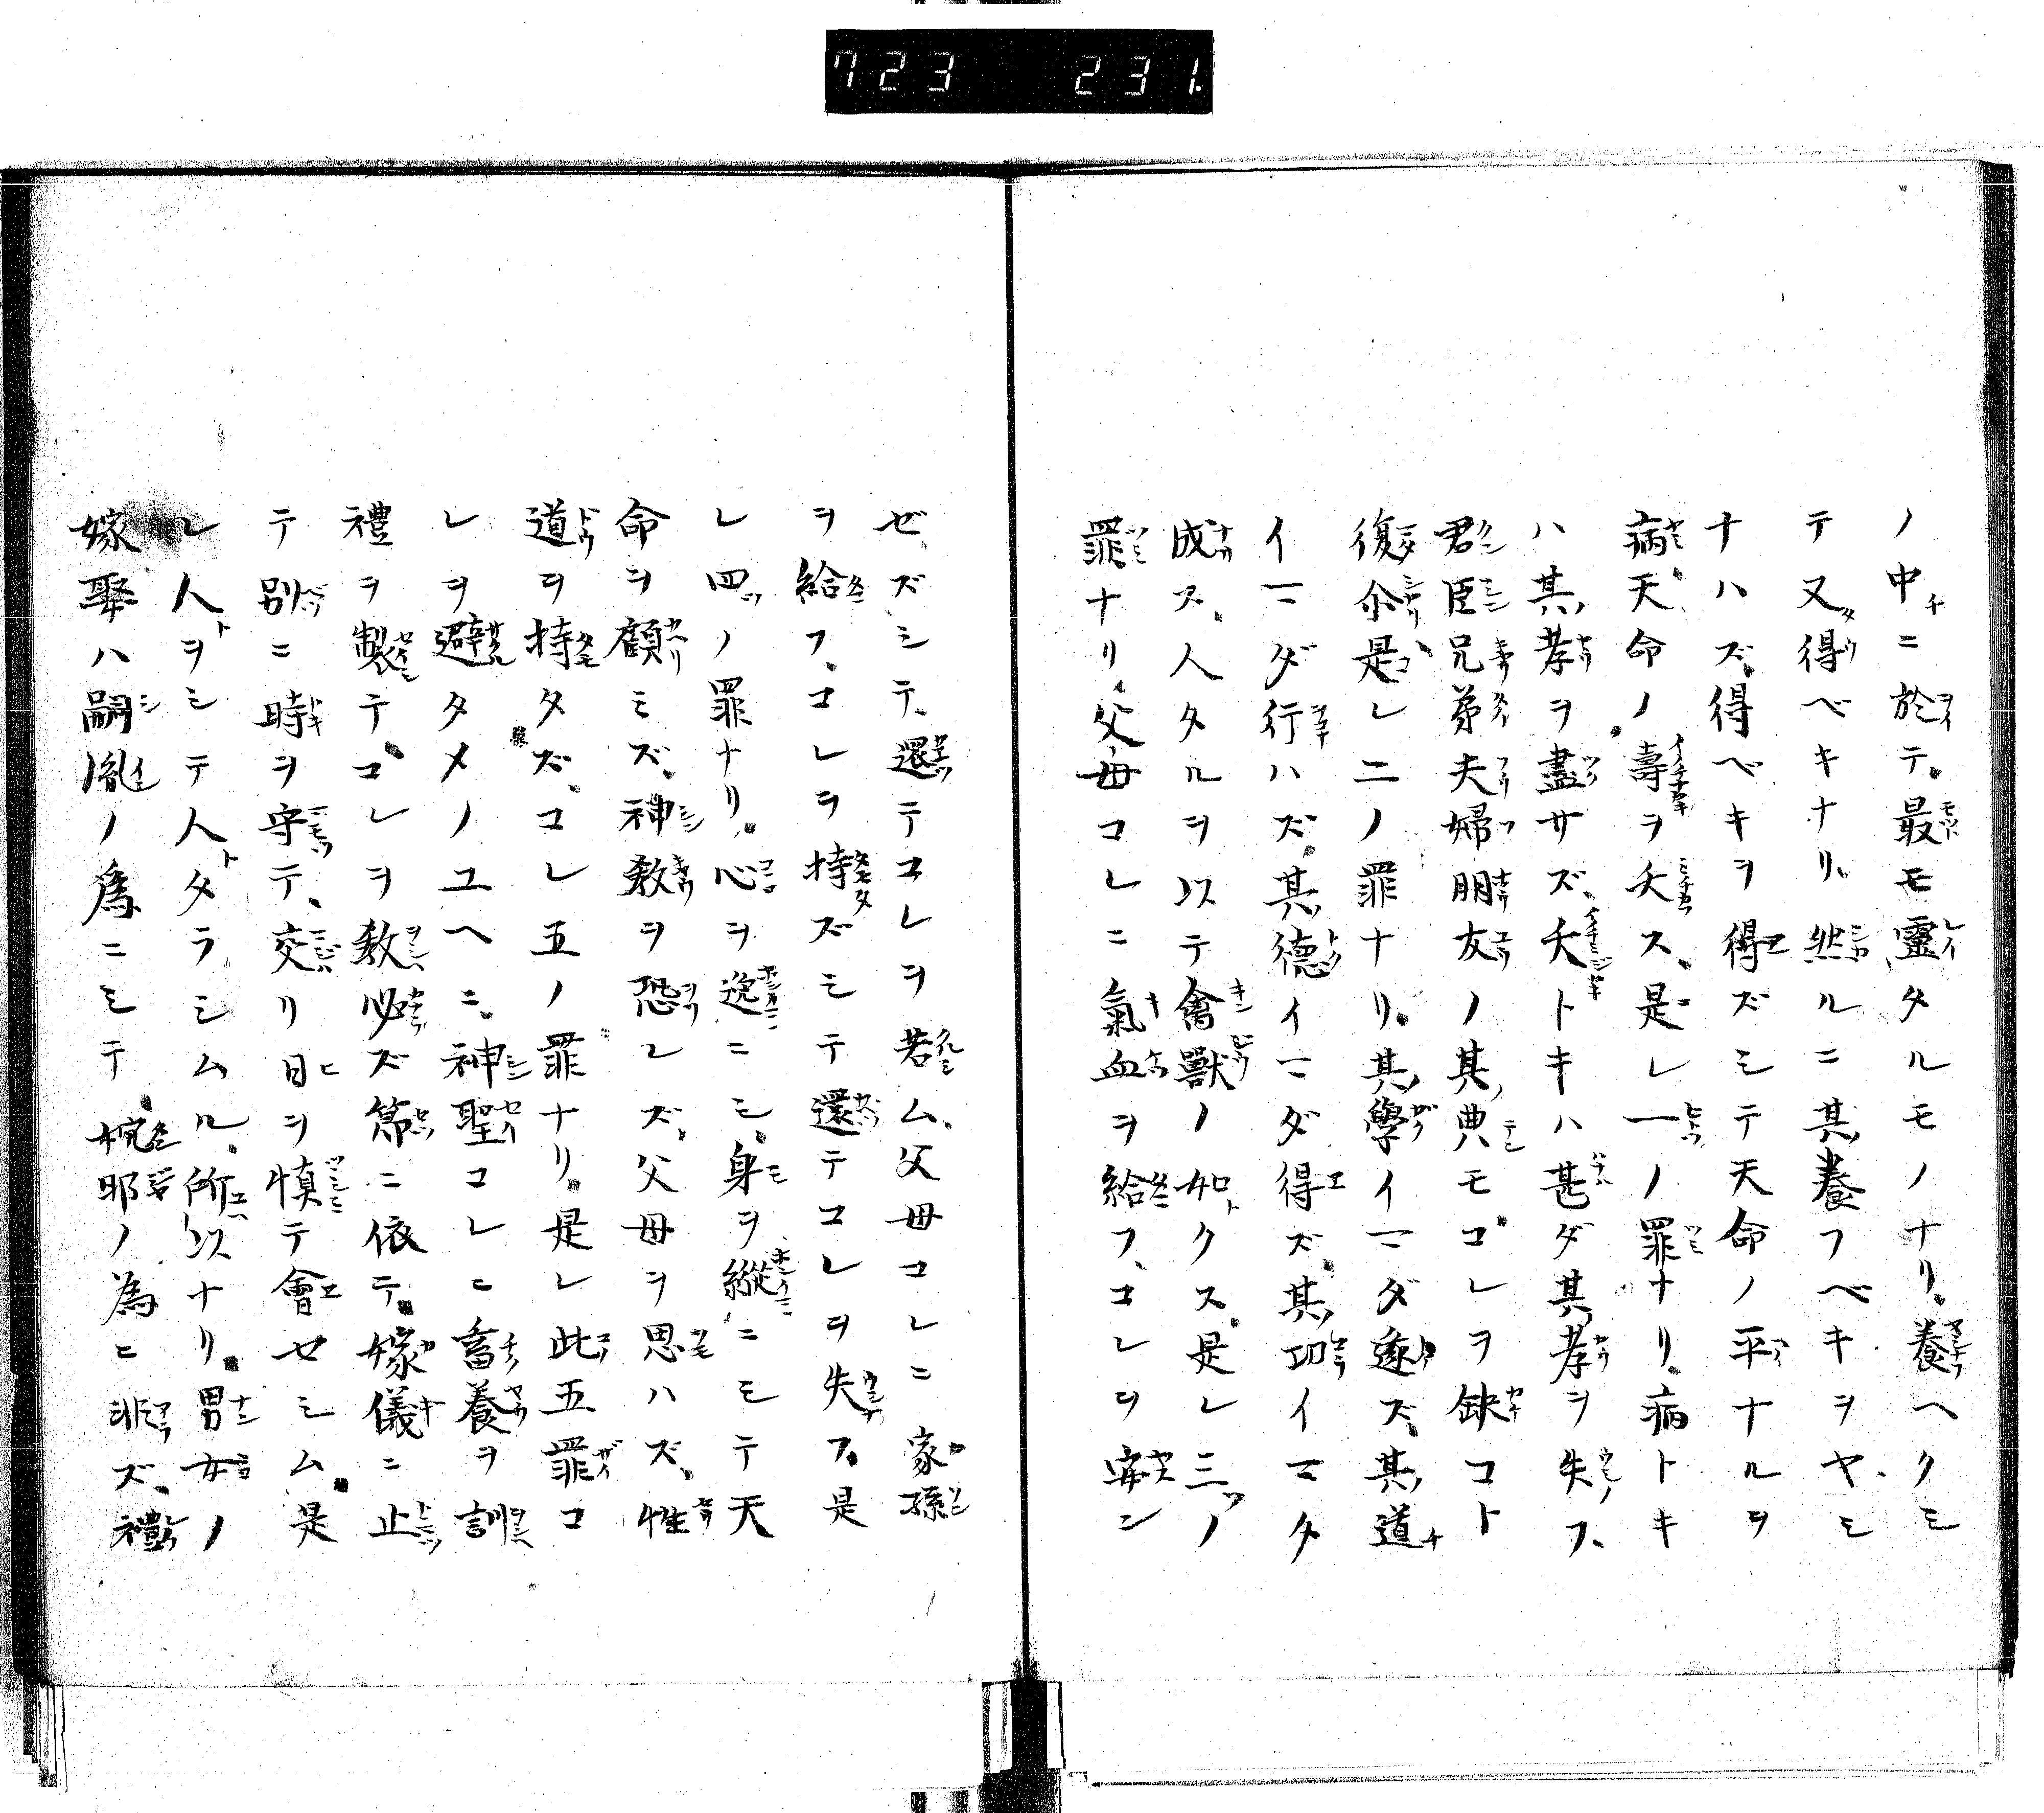 723 231.
ノ中ニ於テ最モ靈タルモノナリ養ヘクシ
テ又得ベキナリ然ルニ其養フベキヲヤシ
ナハズ得ベキヲ得ズシテ天命ノ平ナルヲ
病天命ノ壽ヲ夭ス是レ一ノ罪ナリ病トキ
ハ其孝ヲ盡サズ夭トキハ甚ダ其孝ヲ失フ
君臣兄弟夫婦朋友ノ其典モコレヲ缺コト
復尒是レ二ノ罪ナリ其學イマダ遂ズ其道
イマダ行ハズ其德イマダ得ズ其功イマタ
成ス人タルヲ以テ禽獸ノ如クス是レ三ノ
罪ナリ父母コレニ氣血ヲ給フコレヲ安ン
ゼズシテ還テコレヲ若ム父母コレニ家孫
ヲ給フコレヲ持ズシテ還テコレヲ失フ是
レ四ノ罪ナリ心ヲ逸ニシ身ヲ縱ニシテ天
命ヲ顧ミズ神教ヲ恐レズ父母ヲ思ハズ性
道ヲ持タズコレ五ノ罪ナリ是レ此五罪コ
レヲ避タメノユヘニ神聖コレニ畜養ヲ訓
禮ヲ製テコレヲ教必ズ節ニ依テ嫁儀ニ止
テ別ニ時ヲ守テ交リ日ヲ慎テ會セシム是
レ人ヲシテ人タラシムル所以ナリ男女ノ
嫁娶ハ嗣胤ノ爲ニシテ婉耶ノ為ニ非ズ禮